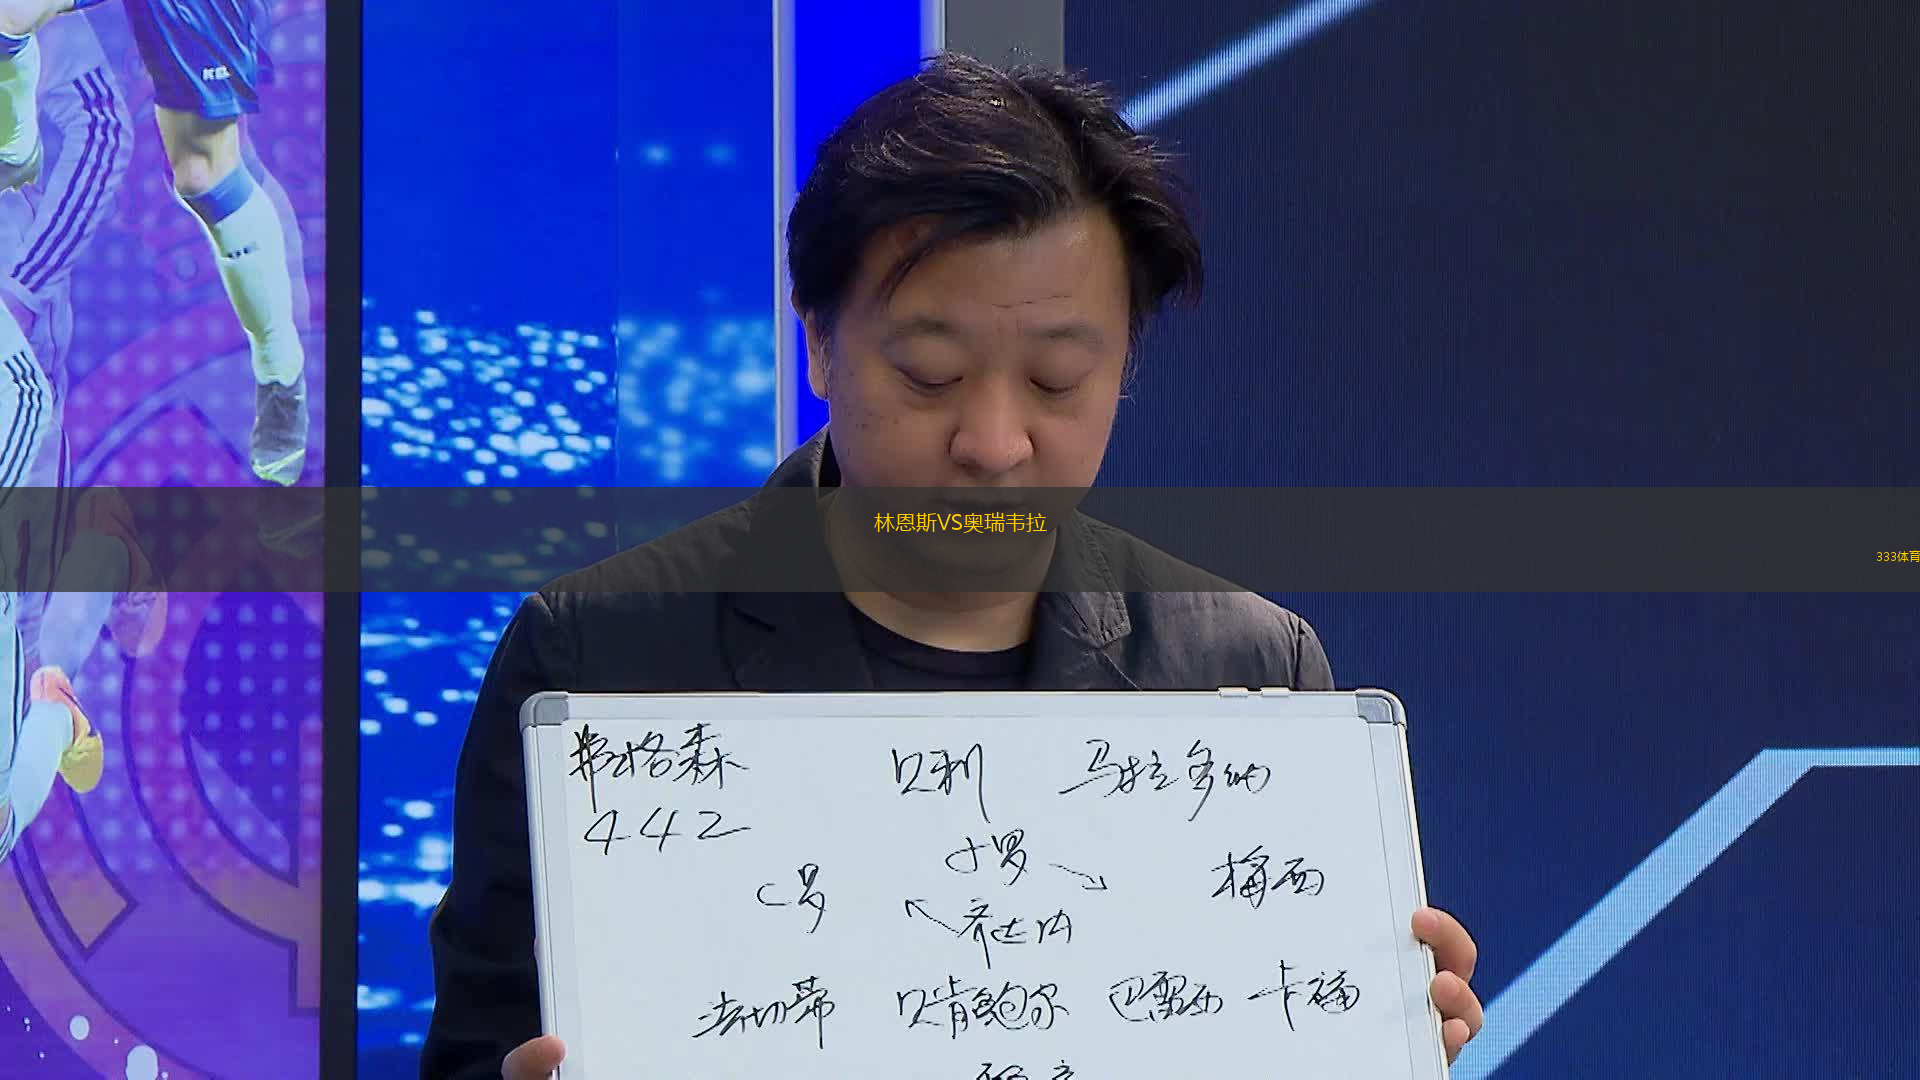 林恩斯VS奥瑞韦拉
333体育
弗格森 贝利 马拉多纳
442
小罗
C罗 梅西
齐达内
法切蒂 贝肯鲍尔 巴雷西 卡福